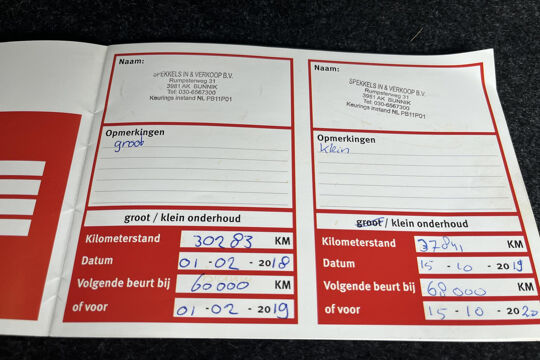 Naam:
SPEKKELS IN & VERKOOP B.V.
Rumpsterweg 31
3981 AK BUNNIK
Tel: 030-6567300
Keurings instand NL PB11P01
Opmerkingen
groot
groot / klein onderhoud
Kilometerstand 30283 KM
Datum 01-02-2018
Volgende beurt bij 60000 KM
of voor 01-02-2019
Naam:
SPEKKELS IN & VERKOOP B.V.
Rumpsterweg 31
3981 AK BUNNIK
Tel: 030-6567300
Keurings instand NL PB11P01
Opmerkingen
klein
groot / klein onderhoud
Kilometerstand 37841 KM
Datum 15-10-2019
Volgende beurt bij 68000 KM
of voor 15-10-2020